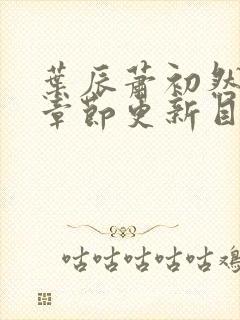 葉辰蕭初然
章節更新目
咕咕咕咕咕鸡